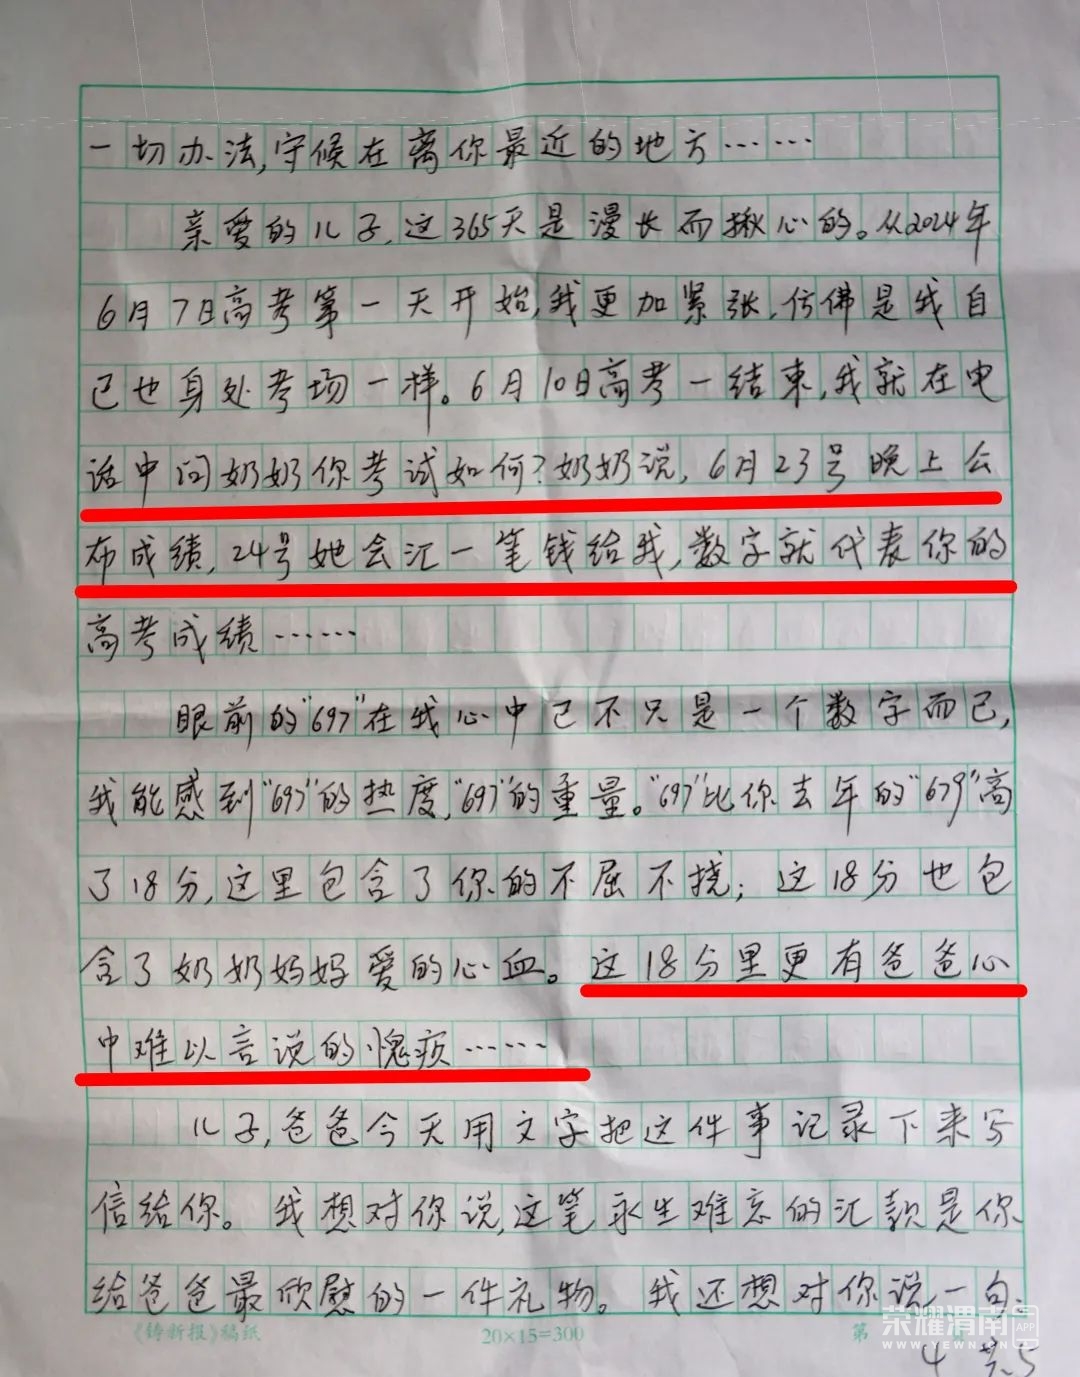 一切办法,守候在离你最近的地方……
亲爱的儿子,这365天是漫长而揪心的。从2024年
6月7日高考第一天开始,我更加紧张,仿佛是我自
己也身处考场一样。6月10日高考一结束,我就在电
话中问奶奶你考试如何?奶奶说,6月23号晚上公
布成绩,24号她会汇一笔钱给我,数字就代表你的
高考成绩……
眼前的"697"在我心中已不只是一个数字而已,
我能感到"697"的热度,"697"的重量。"697"比你去年的"679"高
了18分,这里包含了你的不屈不挠;这18分也包
含了奶奶妈妈爱的心血。这18分里更有爸爸心
中难以言说的愧疚……
儿子,爸爸今天用文字把这件事记录下来写
信给你。我想对你说,这笔永生难忘的汇款是你
给爸爸最欣慰的一件礼物。我还想对你说一句:
《铸新报》稿纸
20×15=300
第
荣耀渭南 APP
WWW.YEWN.CN
4 共5